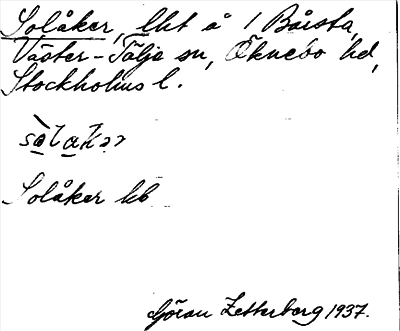 Solåker, lht å 1 Båista,
Väster-Tälje sn, Öknebo hd,
Stockholms l.
Solåker kb
Göran Zetterberg 1937.